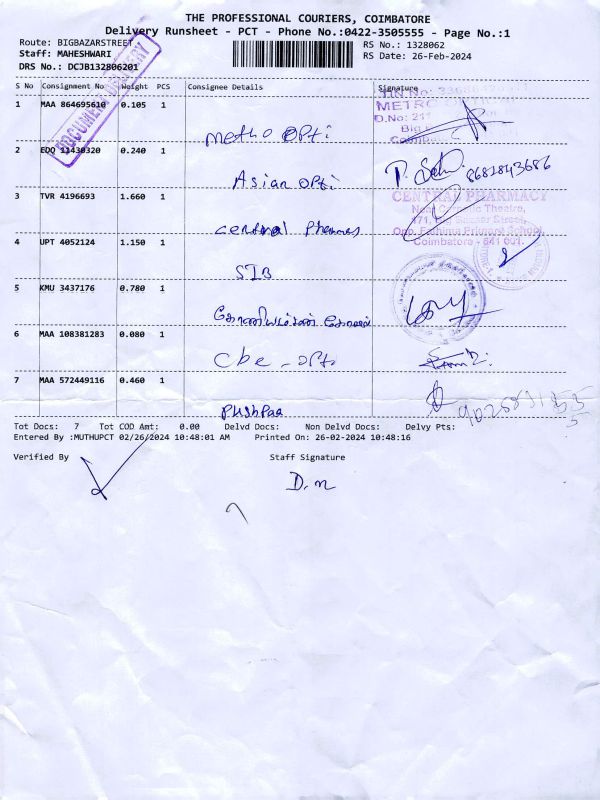 THE PROFESSIONAL COURIERS, COIMBATORE
Delivery Runsheet - PCT - Phone No.:0422-3505555 - Page No.:1
Route: BIGBAZARSTREET
RS No.: 1328062
Staff: MAHESHWARI
RS Date: 26-Feb-2024
DRS No.: DCJB132806201
DOCUMENT DELIVERY
S No Consignment No Weight PCS Consignee Details Signature
1 MAA 864695610 0.105 1
METRO
D.No: 211
Metho Opti
2 EDQ 11430320 0.240 1
8682843686
Asian Opti
3 TVR 4196693 1.660 1
CENTRAL PHARMACY
Theatre,
171, Street,
Opp. Primary School,
Coimbatore - 641 001.
central Pharmes
4 UPT 4052124 1.150 1
SIB
5 KMU 3437176 0.780 1
கோனியம்மன் கோவில்
6 MAA 108381283 0.080 1
Cbe - opti
7 MAA 572449116 0.460 1
Pushpaa
Tot Docs: 7 Tot COD Amt: 0.00 Delvd Docs: Non Delvd Docs: Delvy Pts:
Entered By :MUTHUPCT 02/26/2024 10:48:01 AM Printed On: 26-02-2024 10:48:16
Verified By Staff Signature
D.M